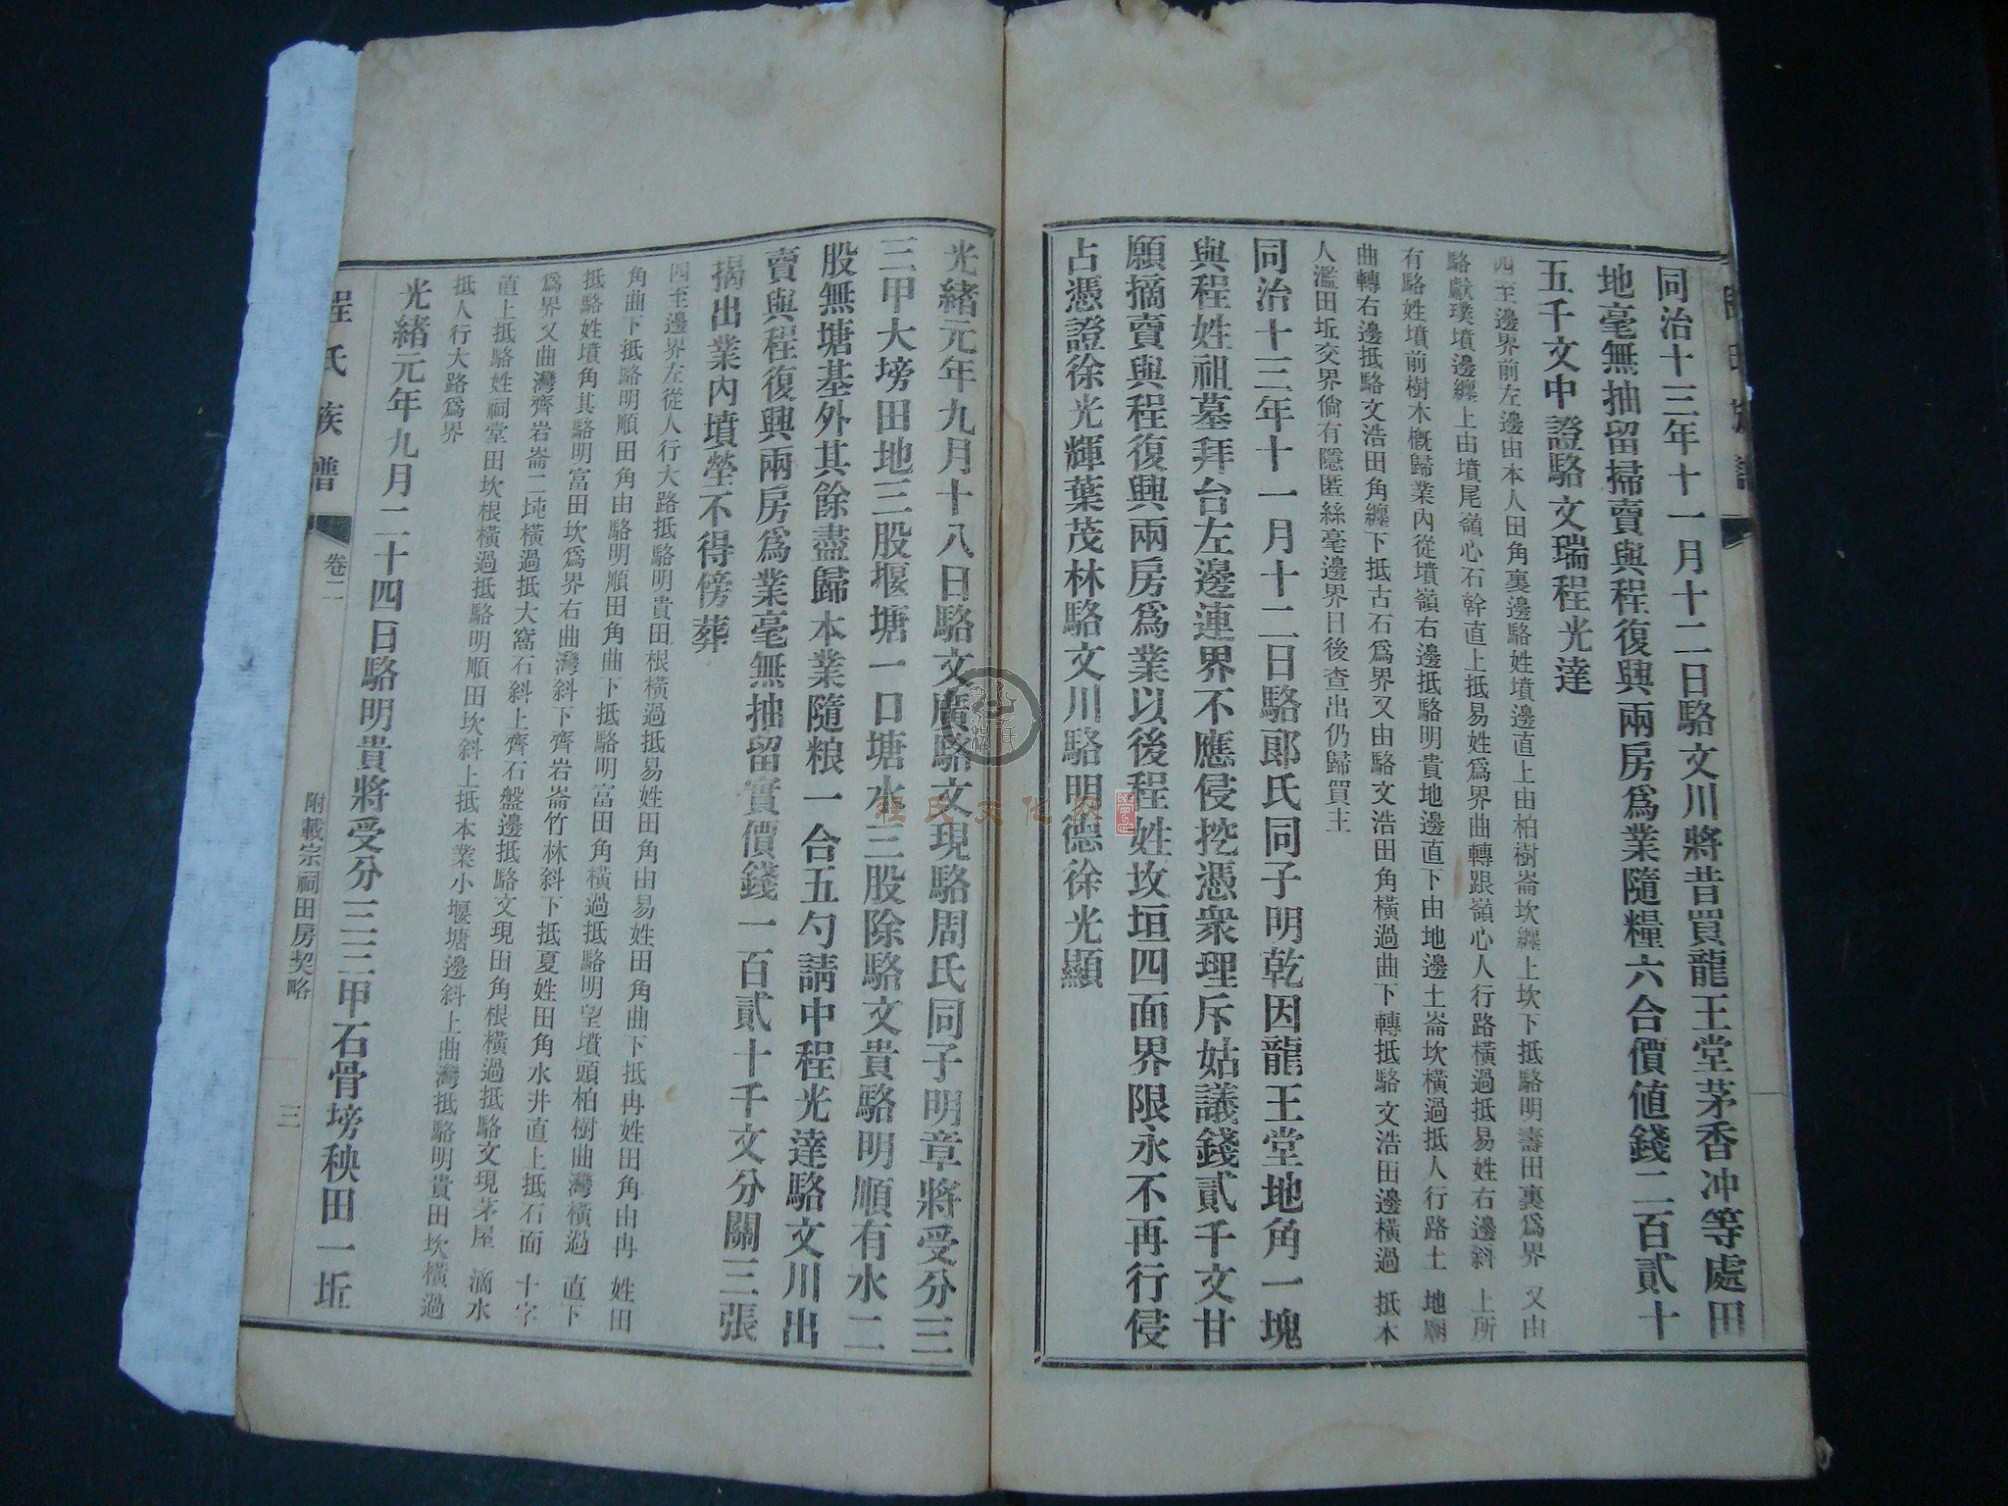 同治十三年十一月十二日駱文川將昔買龍王堂茅香冲等處田
地毫無抽留掃賣與程復興兩房爲業隨糧六合價値錢二百貳十
五千文中證駱文瑞程光達
四至邊界前左邊由本人田角裏邊駱姓墳邊直上由柏樹崙坎纏上坎下抵駱明壽田裏爲界又由
駱獻璞墳邊纏上由墳尾嶺心石幹直上抵易姓爲界曲轉跟嶺心人行路橫過抵易姓右邊斜上所
有駱姓墳前樹木概歸業內從墳嶺右邊抵駱明貴地邊直下由地邊土崙坎橫過抵人行路土地廟
曲轉右邊抵駱文浩田角纏下抵古石爲界又由駱文浩田角橫過曲下轉抵駱文浩田邊橫過抵本
人濫田坵交界倘有隱匿絲毫邊界日後查出仍歸買主
同治十三年十一月十二日駱郎氏同子明乾因龍王堂地角一塊
與程姓祖墓拜台左邊連界不應侵挖憑衆理斥姑議錢貳千文甘
願摘賣與程復興兩房爲業以後程姓坟垣四面界限永不再行侵
占憑證徐光輝葉茂林駱文川駱明德徐光顯
光緒元年九月十八日駱文廣駱文現駱周氏同子明章將受分三
三甲大塝田地三股堰塘一口塘水三股除駱文貴駱明順有水二
股無塘基外其餘盡歸本業隨粮一合五勺請中程光達駱文川出
賣與程復興兩房爲業毫無抽留實價錢一百貳十千文分關三張
揭出業內墳塋不得傍葬
四至邊界左從人行大路抵駱明貴田根橫過抵易姓田角由易姓田角曲下抵冉姓田角由冉姓田
角曲下抵駱明順田角由駱明順田角曲下抵駱明富田角橫過抵駱明望墳頭柏樹曲灣橫過直下
抵駱姓墳角其駱明富田坎爲界右曲灣斜下齊岩崙竹林斜下抵夏姓田角水井直上抵石面十字
爲界又曲灣齊岩崙二坉橫過抵大窩石斜上齊石盤邊抵駱文現田角根橫過抵駱文現茅屋滴水
直上抵駱姓祠堂田坎根橫過抵駱明順田坎斜上抵本業小堰塘邊斜上曲灣抵駱明貴田坎橫過
抵人行大路爲界
光緒元年九月二十四日駱明貴將受分三三甲石骨塝秧田一坵
程氏族譜
卷二
附載宗祠田房契略
三
程氏文化網